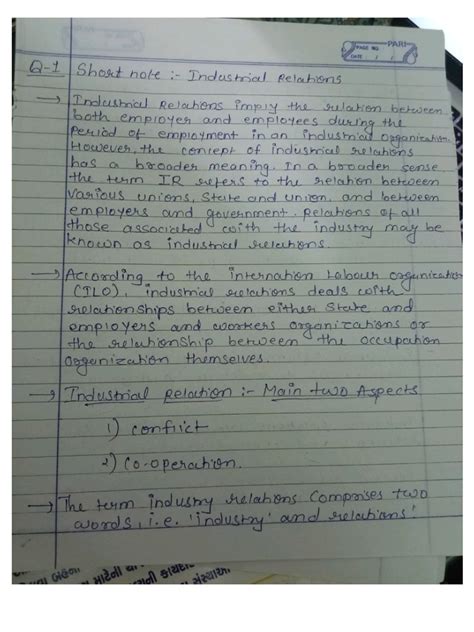 PARI
PAGE NO.
DATE: / /
Q-1 Short note :- Industrial Relations
→ Industrial Relations imply the relation between
both employer and employees during the
period of employment in an industrial organization.
However, the concept of industrial relations
has a broader meaning. In a broader sense
the term IR refers to the relation between
various unions, State and union, and between
employers and government. Relations of all
those associated with the industry may be
known as industrial relations.
→ According to the internation Labour organization
(ILO), industrial relations deals with
relationships between either State and
employers and workers organizations or
the relationship between the occupation
organization themselves.
→ Industrial Relation :- Main two Aspects
1) conflict
2) Co-operation.
→ The term industry relations Comprises two
words, i.e. 'industry' and relations'.
માટેની
સંસ્થાઓ